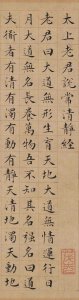 太上老君說常清靜經
老君曰大道無形生育天地大道無情運行日
月大道無名長養萬物吾不知其名強名曰道
夫道者有清有濁有動有靜天清地濁天動地